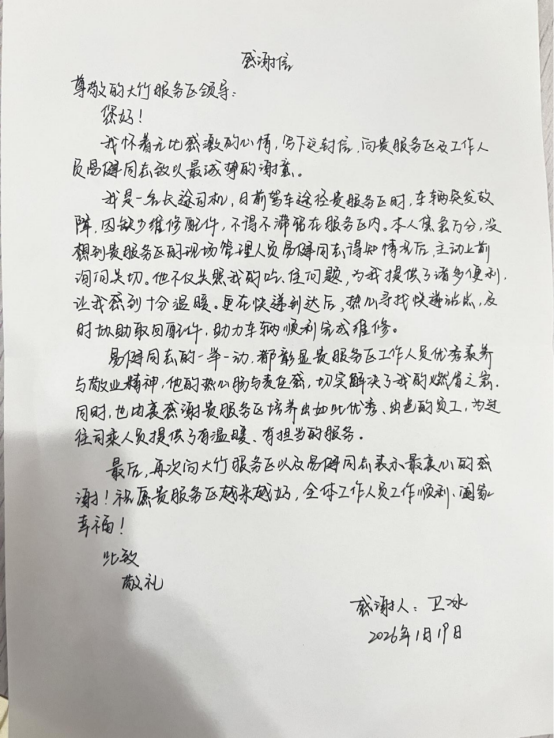 感谢信
尊敬的大竹服务区领导：
您好！
我怀着无比感激的心情，写下这封信，向贵服务区及工作人
员易健同志致以最诚挚的谢意。
我是一名长途司机，日前驾车途经贵服务区时，车辆突发故
障，因缺少维修配件，不得不滞留在服务区内。本人焦急万分，没
想到贵服务区的现场管理人员易健同志得知情况后，主动上前
询问关切。他不仅关照我的吃、住问题，为我提供了诸多便利，
让我感到十分温暖。更在快递到达后，热心寻找快递站点，及
时协助取回配件，助力车辆顺利完成维修。
易健同志的一举一动，都彰显贵服务区工作人员优秀素养
与敬业精神，他的热心肠与责任感，切实解决了我的燃眉之急。
同时，也由衷感谢贵服务区培养出如此优秀、出色的员工，为过
往司乘人员提供了有温暖、有担当的服务。
最后，再次向大竹服务区以及易健同志表示最衷心的感
谢！祝愿贵服务区越来越好，全体工作人员工作顺利、阖家
幸福！
此致
敬礼
感谢人：卫冰
2026年1月19日